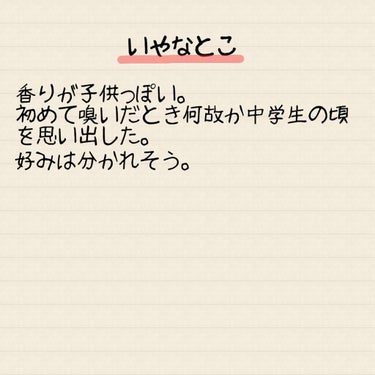 いやなとこ
香りが子供っぽい。
初めて嗅いだとき何故か中学生の頃
を思い出した。
好みは分かれそう。